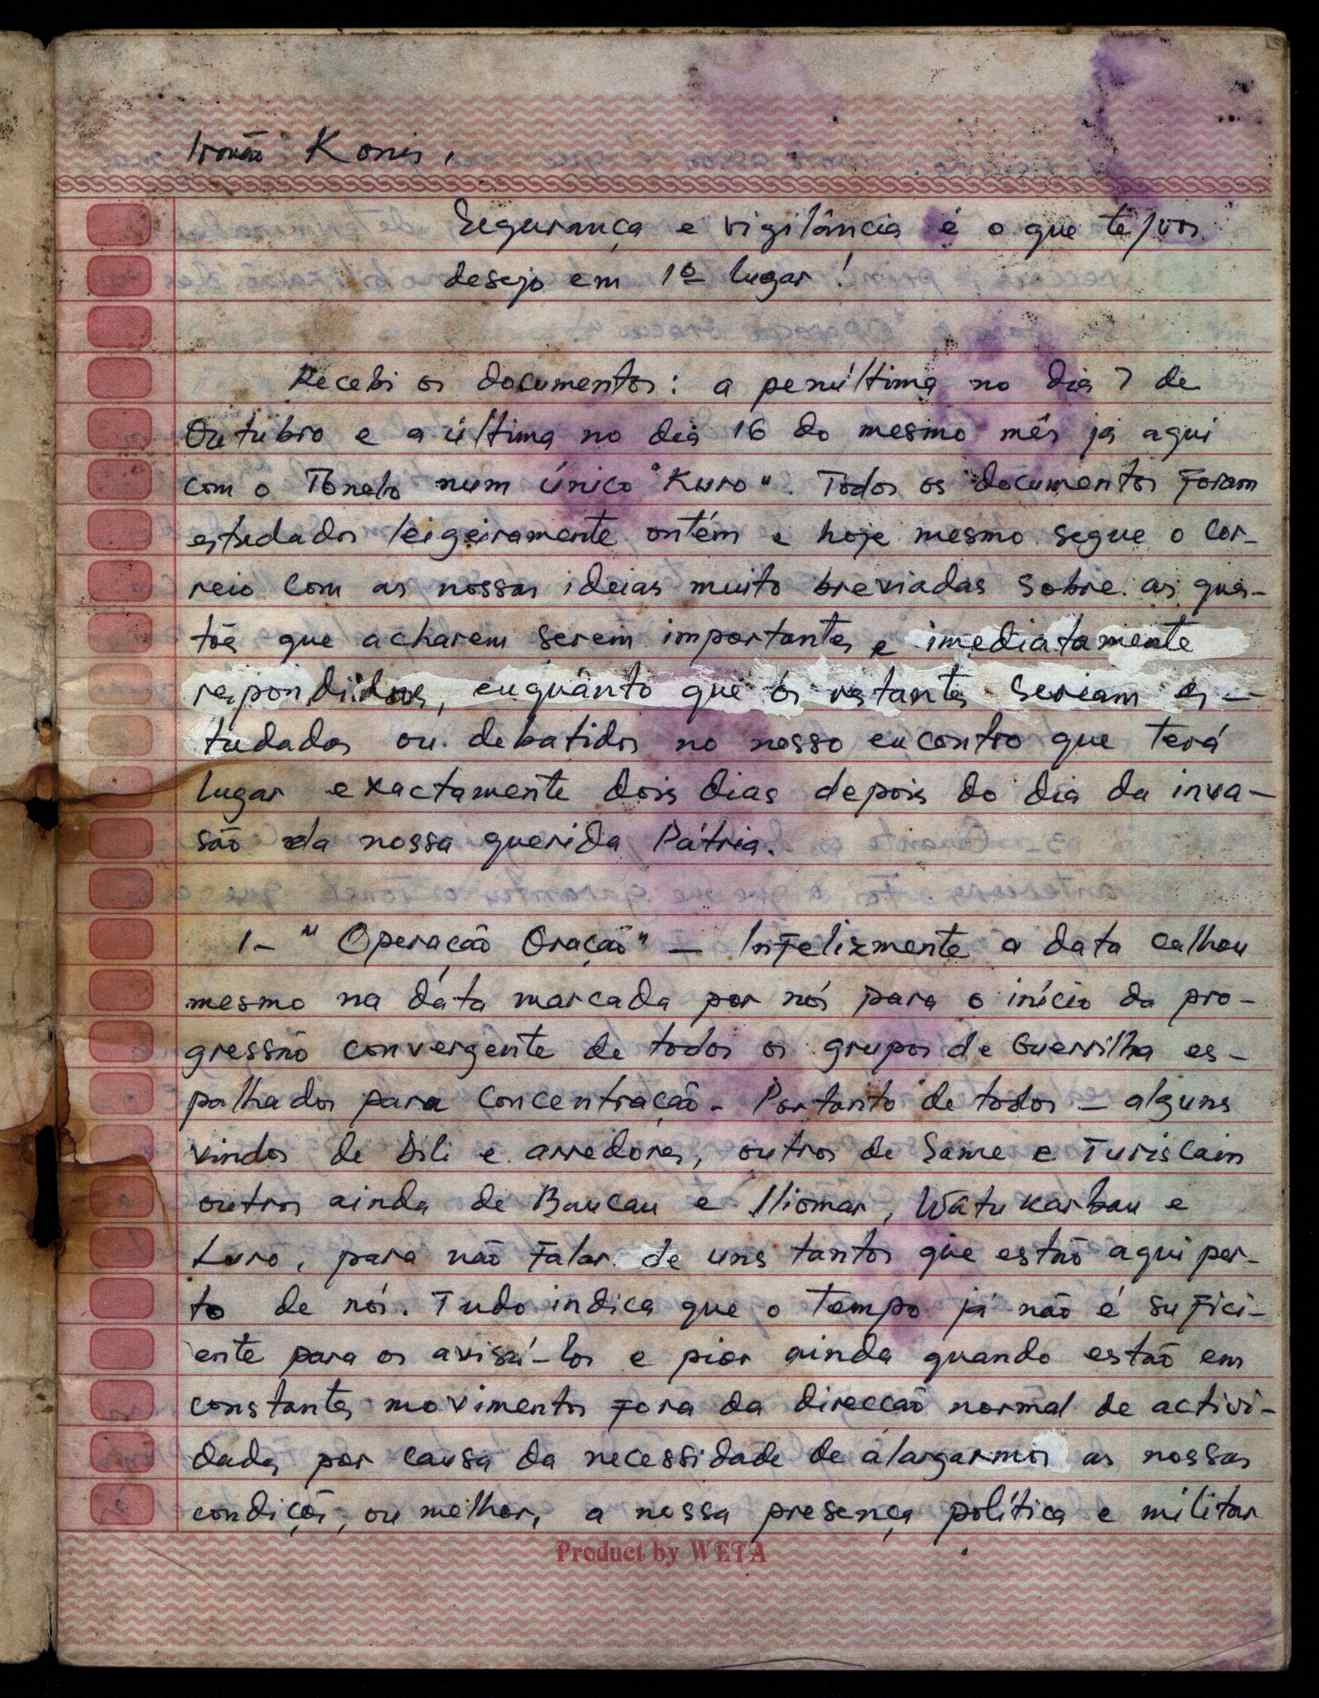 Irmão Konis,
Segurança e vigilância é o que te/vos
desejo em 1º lugar!
Recebi os documentos: a penúltima no dia 7 de
Outubro e a última no dia 16 do mesmo mês já aqui
com o Tonelo num único "Kuro". Todos os documentos foram
estudados leigeiramente ontém e hoje mesmo segue o cor-
reio com as nossas ideias muito breviadas sobre as ques-
tõe que acharem serem importantes e imediatamente
respondidas, enquânto que os restantes seriam es-
tudados ou debatidos no nosso encontro que terá
lugar exactamente dois dias depois do dia da inva-
são da nossa querida Pátria.
1- "Operação Oração" - Infelizmente a data calhou
mesmo na dáta marcada por nós para o início da pro-
gressão convergente de todos os grupos de Guerrilha es-
palhados para concentração - Portanto de todos - alguns
vindos de Dili e arredores, outros de Same e Turiscain
outros ainda de Baucau e Iliomar, Watukarbau e
Luro, para não falar de uns tantos que estão aqui per-
to de nós. Tudo indica que o tempo já não é sufici-
ente para os avisá-los e pior ainda quando estão em
constantes movimentos fora da direccão normal de activi-
dades por causa da necessidade de alargarmos as nossas
condições, ou melhor, a nossa presença política e militar
Product by WETA